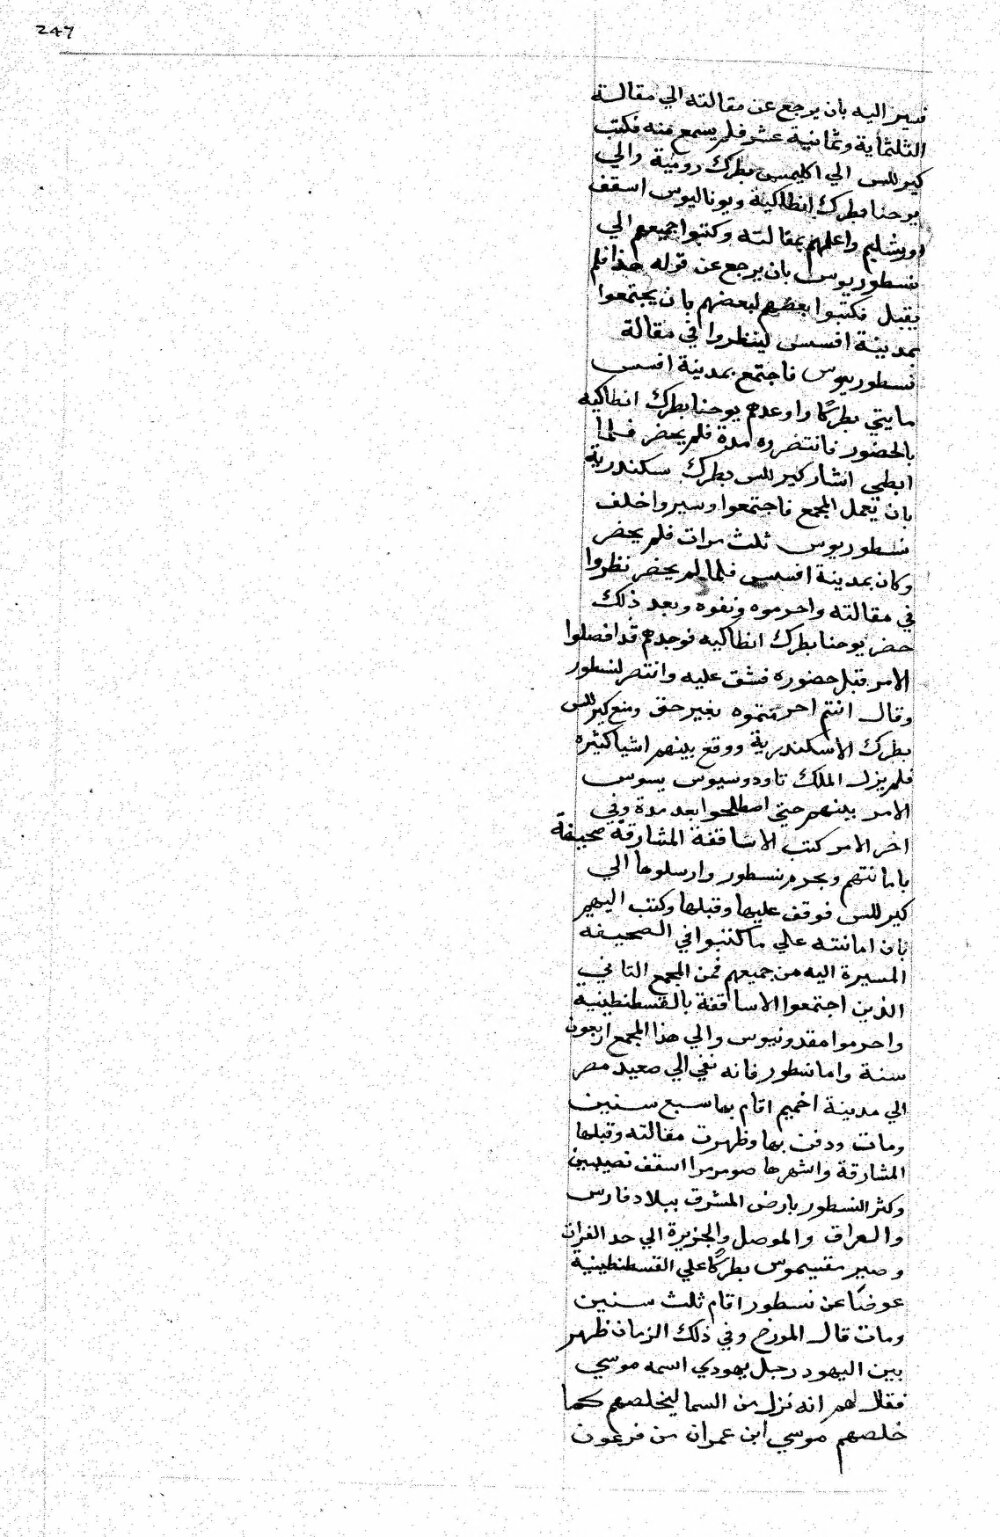 247
فسير اليه بان يرجع عن مقالته الي مقالة
الثلثماية وثمانية عشر فلم يسمع منه فكتب
كيرللس الي اكليمس بطرك رومية والي
يوحنا بطرك انطاكية ويوناليوس اسقف
اورشليم واعلمهم بمقالته وكتبوا جميعهم الي
نسطوريوس بان يرجع عن قوله هذا فلم
يقبل فكتبوا بعضهم لبعضهم بان يجتمعوا
بمدينة افسس لينظروا في مقالة
نسطوريوس فاجتمع بمدينة افسس
مايتي بطركًا واوعدهم يوحنا بطرك انطاكيه
بالحضور فانتضروه مدة فلم يحضر فلما
ابطي اشار كيرللس بطرك سكندرية
بان تعمل المجمع فاجتمعوا وسيروا خلف
نسطوريوس ثلث مرات فلم يحضر
وكان بمدينة افسس فلما لم يحضر نظروا
في مقالته واحرموه ونفوه وبعد ذلك
حضر يوحنا بطرك انطاكيه فوجدهم قد افصلوا
الامر قبل حضوره فشق عليه وانتصر لنسطور
وقال انتم احرمتموه بغير حق ومنع كيرللس
بطرك الاسكندرية ووقع بينهم اشيا كثيره
فلم يزل الملك تاودوسيوس يسوس
الامر بينهم حتي اصطلحوا بعد مدة وفي
اخر الامر كتب الاساقفة المشارقة صحيفة
بامانتهم وبحرم نسطور وارسلوها الي
كيرللس فوقف عليها وقبلها وكتب اليهم
بان امانته علي ما كتبوا في الصحيفه
المسيرة اليه من جميعهم فمن المجمع التاني
الذين اجتمعوا الاساقفة بالقسطنطينيه
واحرموا مقدونيوس والي هذا المجمع اربعون
سنة واما نسطور فانه نفي الي صعيد مصر
الي مدينة اخميم اقام بها سبع سنين
ومات ودفن بها وظهرت مقالته وقبلها
المشارقة واشهرها صومرما اسقف نصيبين
وكثر النسطور بارض المشرق ببلاد فارس
والعراق والموصل والجزيرة الي حد الفرات
وصير مقسيموس بطركًا علي القسطنطينية
عوضًا عن نسطور اقام ثلث سنين
ومات قال المورخ وفي ذلك الزمان ظهر
بين اليهود رجل يهودي اسمه موسي
فقال لهم انه نزل من السما ليخلصهم كما
خلصهم موسي ابن عمران من فرعون